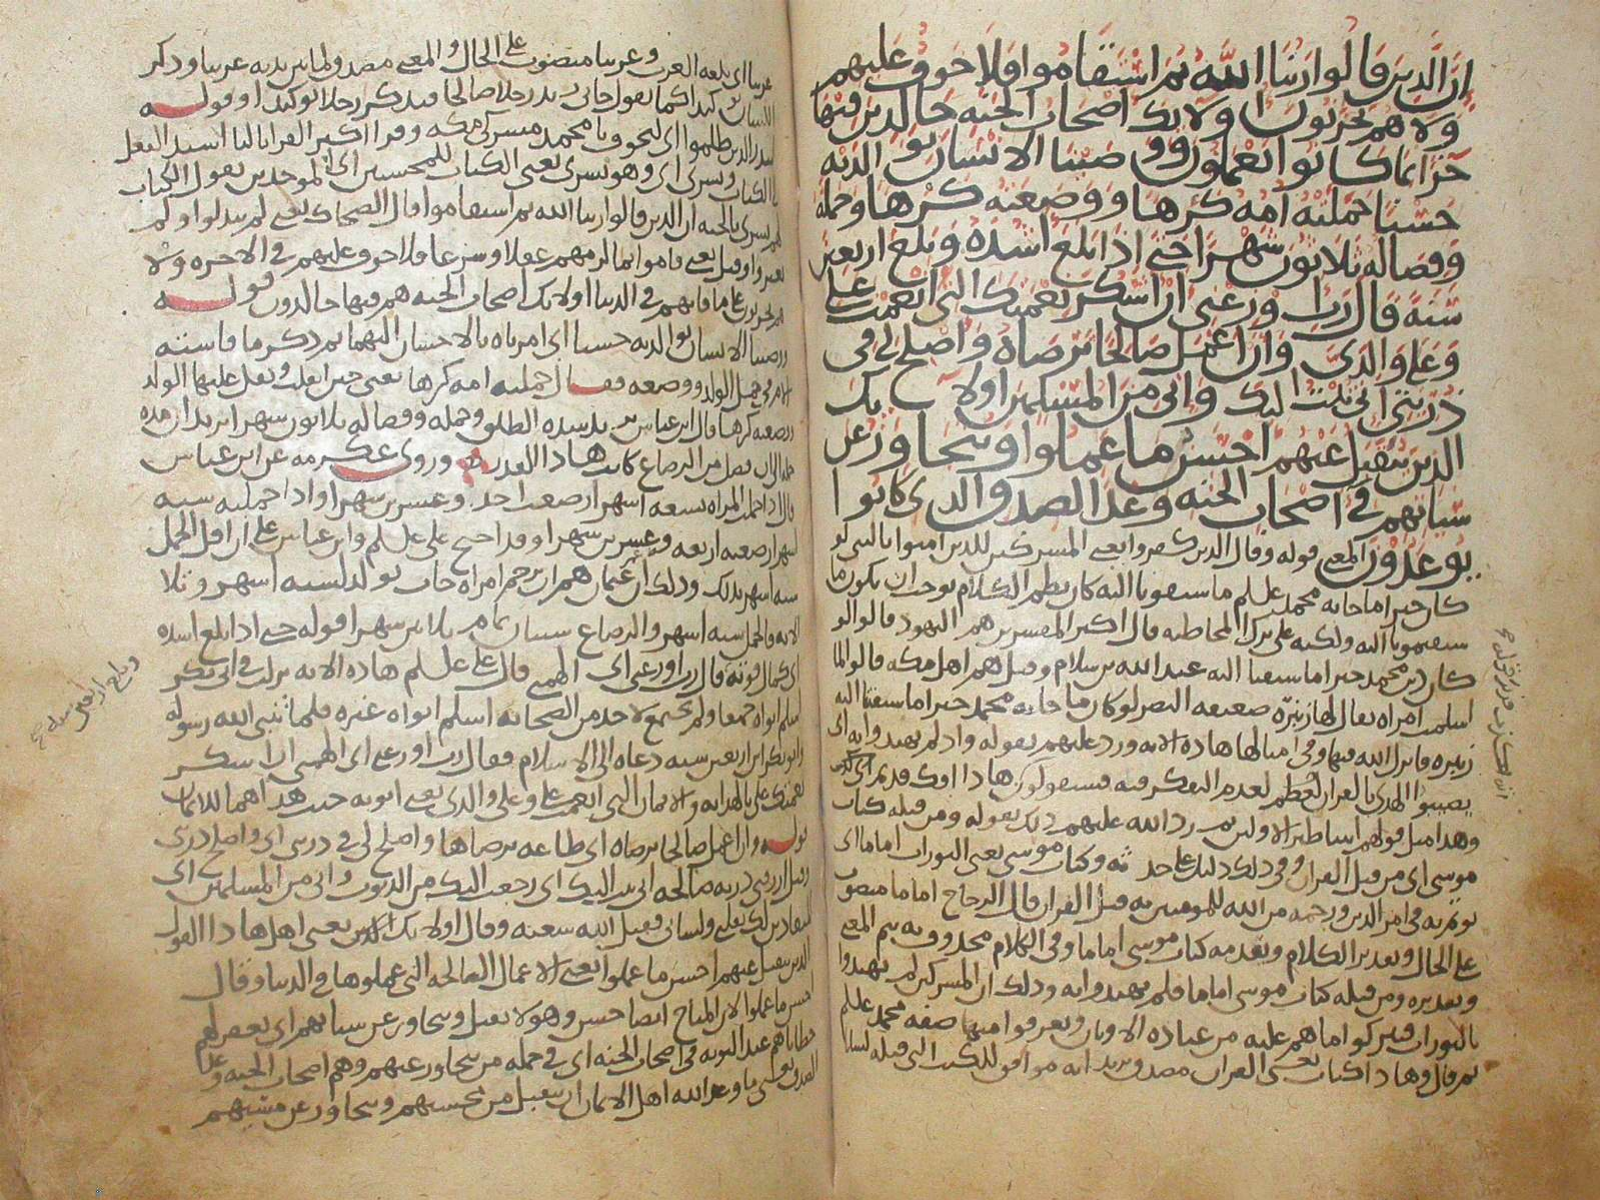 ان الذين قالوا ربنا الله ثم استقاموا فلا خوف عليهم
ولا هم يحزنون اولايك اصحاب الجنه خالدين فيها
جزا بما كانوا يعملون ووصينا الانسان بوالديه
حسنا حملته امه كرها ووضعته كرها وحمله
وفصاله ثلاثون شهرا حتى اذا بلغ اشده وبلغ اربعين
سنة قال رب اوزعني ان اشكر نعمتك التي انعمت علي
وعلى والدي وان اعمل صالحا ترضاه واصلح لي في
ذريتي اني تبت اليك واني من المسلمين اولايك
الذين يتقبل عنهم احسن ما عملوا ويتجاوز عن
سياتهم في اصحاب الجنه وعد الصدق الذي كانوا
يوعدون المعنى قوله وقال الذين كفروا يعني المشركين للذين امنوا بالنبي لو
كان خيرا ما جا به محمد عليلم ما سبقونا اليه كان نظم الكلام يوجب ان يكون ما
سبقتمونا اليه ولكنه على ترك المخاطبه قال اكثر المفسرين هم اليهود قالوا لو
كان دين محمد خيرا ما سبقنا اليه عبد الله بن سلام وقيل هم اهل مكه قالوا لما
اسلمت امراه يقال لها زنيره ضعيفه البصر لو كان ما جا به محمد خيرا ما سبقتنا اليه
زنيره فانزل الله فيها وفي امثالها هاذه الايه ورد عليهم بقوله واذ لم يهتدوا به اي
يصيبوا الهدى بالقران لعدم التفكر فيه فسيقولون هاذا افك قديم اي كذب
وهذا مثل قولهم اساطير الاولين ثم رد الله عليهم ذلك بقوله ومن قبله كتاب
موسى اي من قبل القران وفي ذلك دليل على وكتاب موسى يعني التورات اماما اي
يوتم به في امر الدين ورحمه من الله للمومنين به قبل القران قال الزجاج اماما منصوب
على الحال وتقدير الكلام وتقدمه كتاب موسى اماما وفي الكلام محذوف به يتم المعنى
وتقديره ومن قبله كتاب موسى اماما فلم يهتدوا به وذلك ان المشركين لم يهتدوا
بالتورات فيتركوا ما هم عليه من عباده الاوثان ويعرفوا منها صفه محمد عليلم
ثم قال وهاذا كتاب يعني القران مصدق يريد انه موافق للكتب التي قبله لسانا
عربيا اي بلغه العرب وعربيا منصوب على الحال والمعنى مصدق لما بين يديه عربيا وذكر
اللسان توكيدا كما تقول جاني زيد رجلا صالحا فتذكر رجلا توكيدا وقوله
لينذر الذين ظلموا اي ليخوف يا محمد مشركي مكه وقرا اكثر القرا بالتا اسند الفعل
الكتاب وبشرى اي وهو بشرى يعني الكتاب للمحسنين اي الموحدين يقول الكتاب
لهم بشرى بالجنه ان الذين قالوا ربنا الله ثم استقاموا قال الضحاك يعني لم يبدلوا ولم
يغيروا وقيل يعني قاموا بما لزمهم عقلا وشرعا فلا خوف عليهم في الاخره ولا
هم يحزنون على ما فاتهم في الدنيا اولايك اصحاب الجنه هم فيها خالدون قوله
ووصينا الانسان بوالديه حسنا اي امرناه بالاحسان اليهما ثم ذكر ما قاسته
الام في حمل الولد ووضعه فقال حملته امه كرها يعني حين اثقلت وثقل عليها الولد
ووضعته كرها قال ابن عباس يريد شده الطلق وحمله وفصاله ثلاثون شهرا يريد ان مده
حمله الى ان فصل من الرضاع كانت هاذا القدر وروى عكرمه عن ابن عباس
قال اذا حملت المراه تسعه اشهر ارضعت احد وعشرين شهرا واذا حملته سته
اشهر ارضعته اربعه وعشرين شهرا وقد احتج علي عليلم وابن عباس على ان اقل الحمل
سته اشهر بذلك وذلك ان عثمان هم ان يرجم امراه جات بولد لسته اشهر وتلا
الايه فالحمل سته اشهر والرضاع سنتان تمام ثلاثين شهرا قوله حتى اذا بلغ اشده
اي كمال قوته قال رب اوزعني اي الهمني قال علي عليلم هاذه الايه نزلت في ابي بكر
اسلم ابواه جميعا ولم يجتمع لاحد من الصحابه اسلم ابواه غيره فلما نبى الله رسوله
وابو بكر ابن اربعين سنه دعاه الى الاسلام فقال رب اوزعني اي الهمني ان اشكر
نعمتك علي بالهدايه والايمان التي انعمت علي وعلى والدي يعني ابويه حيث هداهما للايمان
قوله وان اعمل صالحا ترضاه اي طاعه ترضاها واصلح لي في ذريتي اي واصلح ذريتي
وقيل ارزقني ذريه صالحه اني تبت اليك اي رجعت اليك من الذنوب واني من المسلمين اي
المنقادين لك بقلبي ولساني فقبل الله سعيه وقال اولايك الذين يعني اهل هاذا القول
الذين يتقبل عنهم احسن ما عملوا يعني الاعمال الصالحه التي عملوها في الدنيا وقال
احسن ما عملوا لان المباح ايضا حسن وهو لا يقبل ويتجاوز عن سياتهم اي يغفر لهم
خطاياهم عند التوبه في اصحاب الجنه اي في جمله من يتجاوز عنهم وهم اصحاب الجنه وعد
الصدق يعني ما وعد الله اهل الايمان ان يتقبل من محسنهم ويتجاوز عن مسيهم
وبلغ اربعين سنه